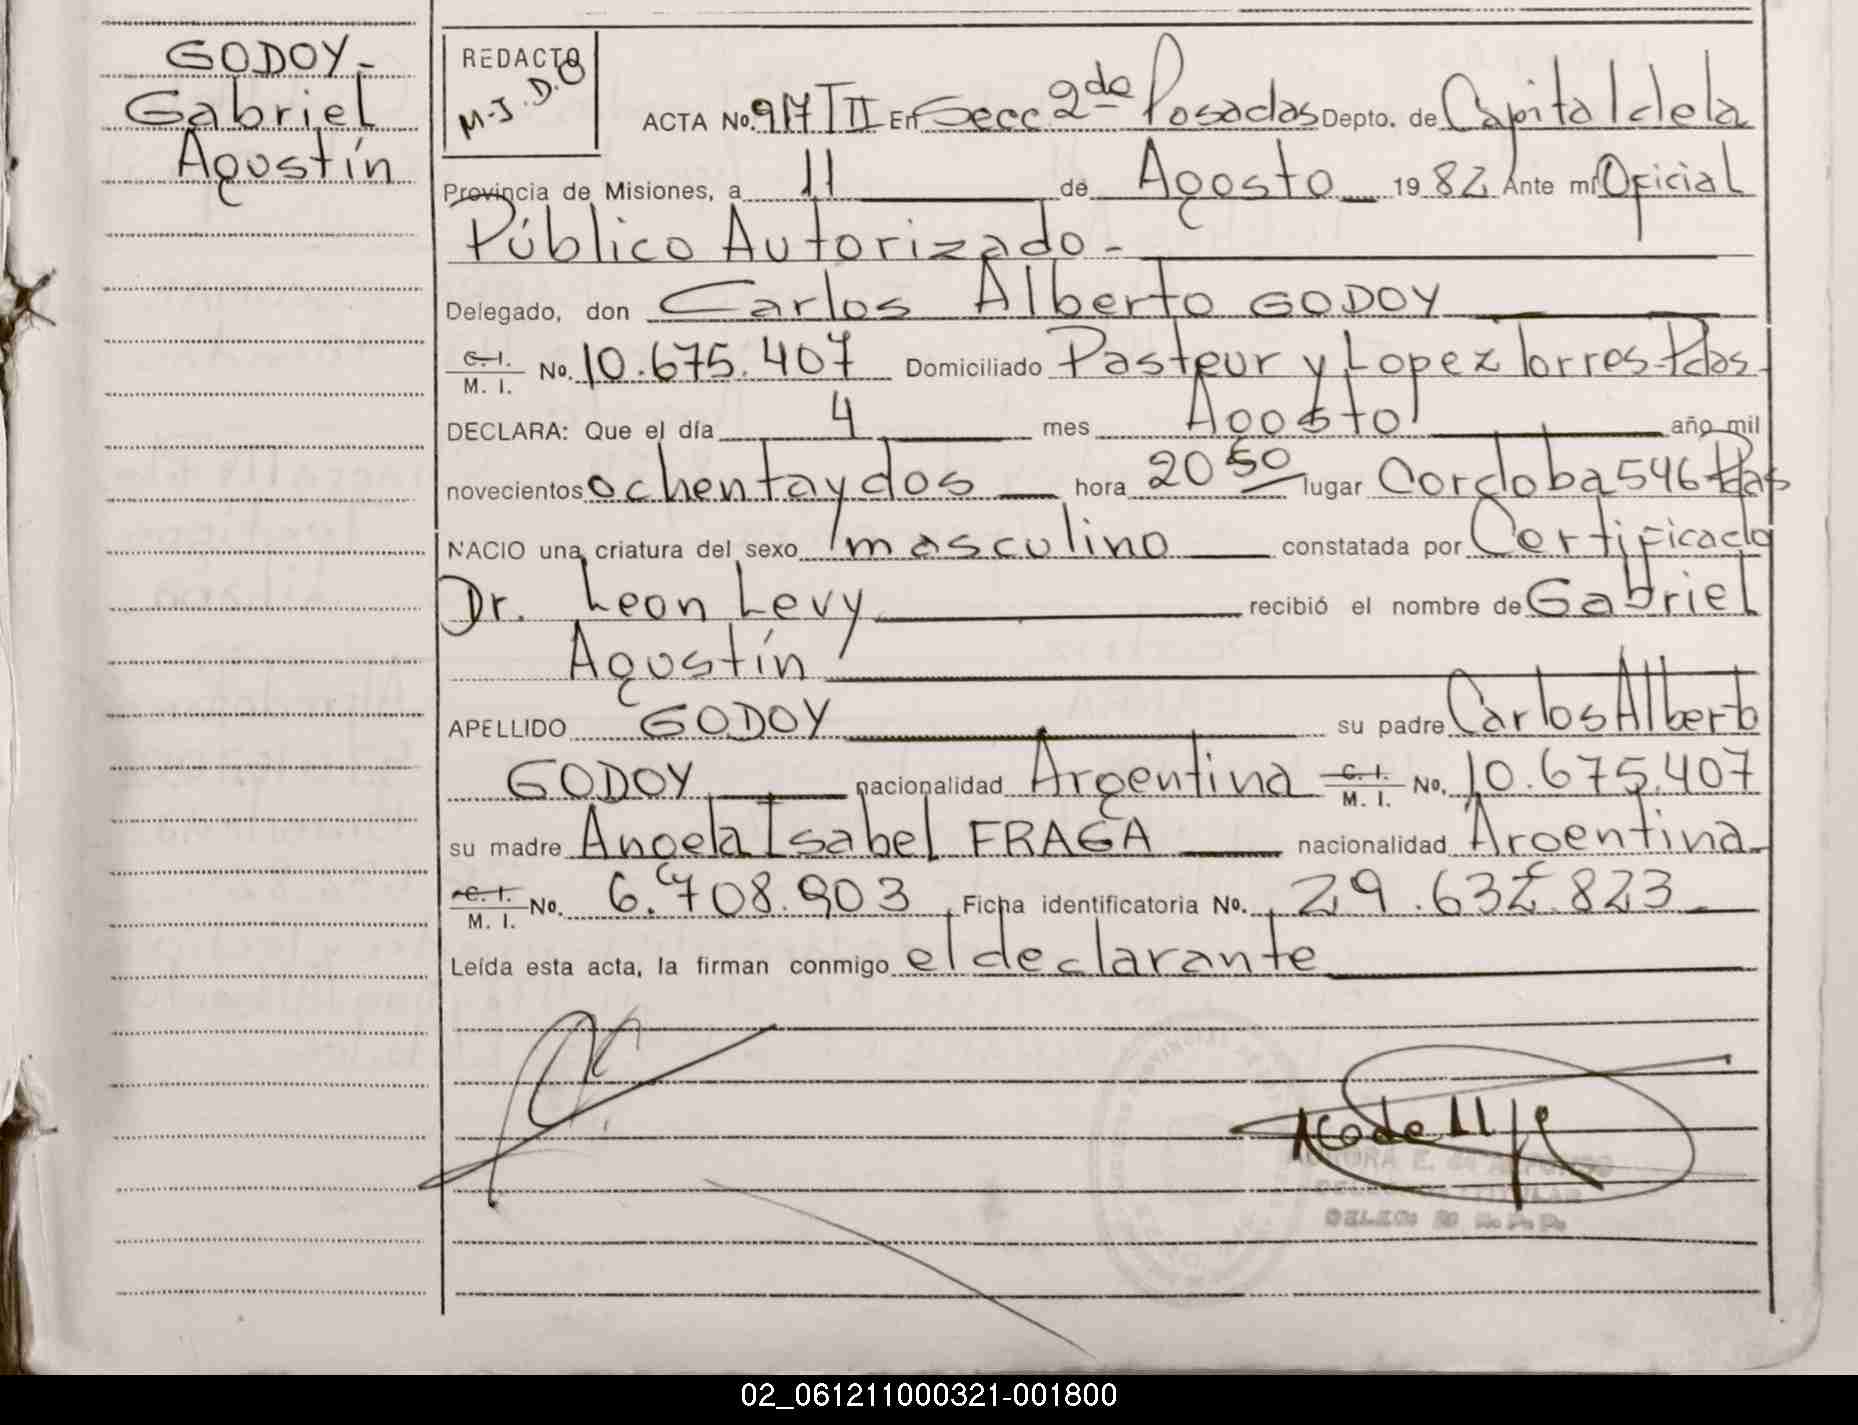 GODOY-
Gabriel
Agustín
REDACTO
M.J.D.O
ACTA No. 917 T II En Secc 2da Posadas Depto. de Capital de la
Provincia de Misiones, a 11 de Agosto 1982 Ante mí Oficial
Público Autorizado-
Delegado, don Carlos Alberto GODOY
C.I. M.I. No. 10.675.407 Domiciliado Pasteur y Lopez Torres-Pdas-
DECLARA: Que el día 4 mes Agosto año mil
novecientos ochenta y dos hora 20 50 lugar Cordoba 546 Pdas
NACIO una criatura del sexo masculino constatada por Certificado
Dr. Leon Levy recibió el nombre de Gabriel
Agustín
APELLIDO GODOY su padre Carlos Alberto
GODOY nacionalidad Argentina C.I. M.I. No. 10.675.407
su madre Angela Isabel FRAGA nacionalidad Argentina
C.I. M.I. No. 6.708.903 Ficha identificatoria No. 29.632.823
Leída esta acta, la firman conmigo el declarante
02_061211000321-001800